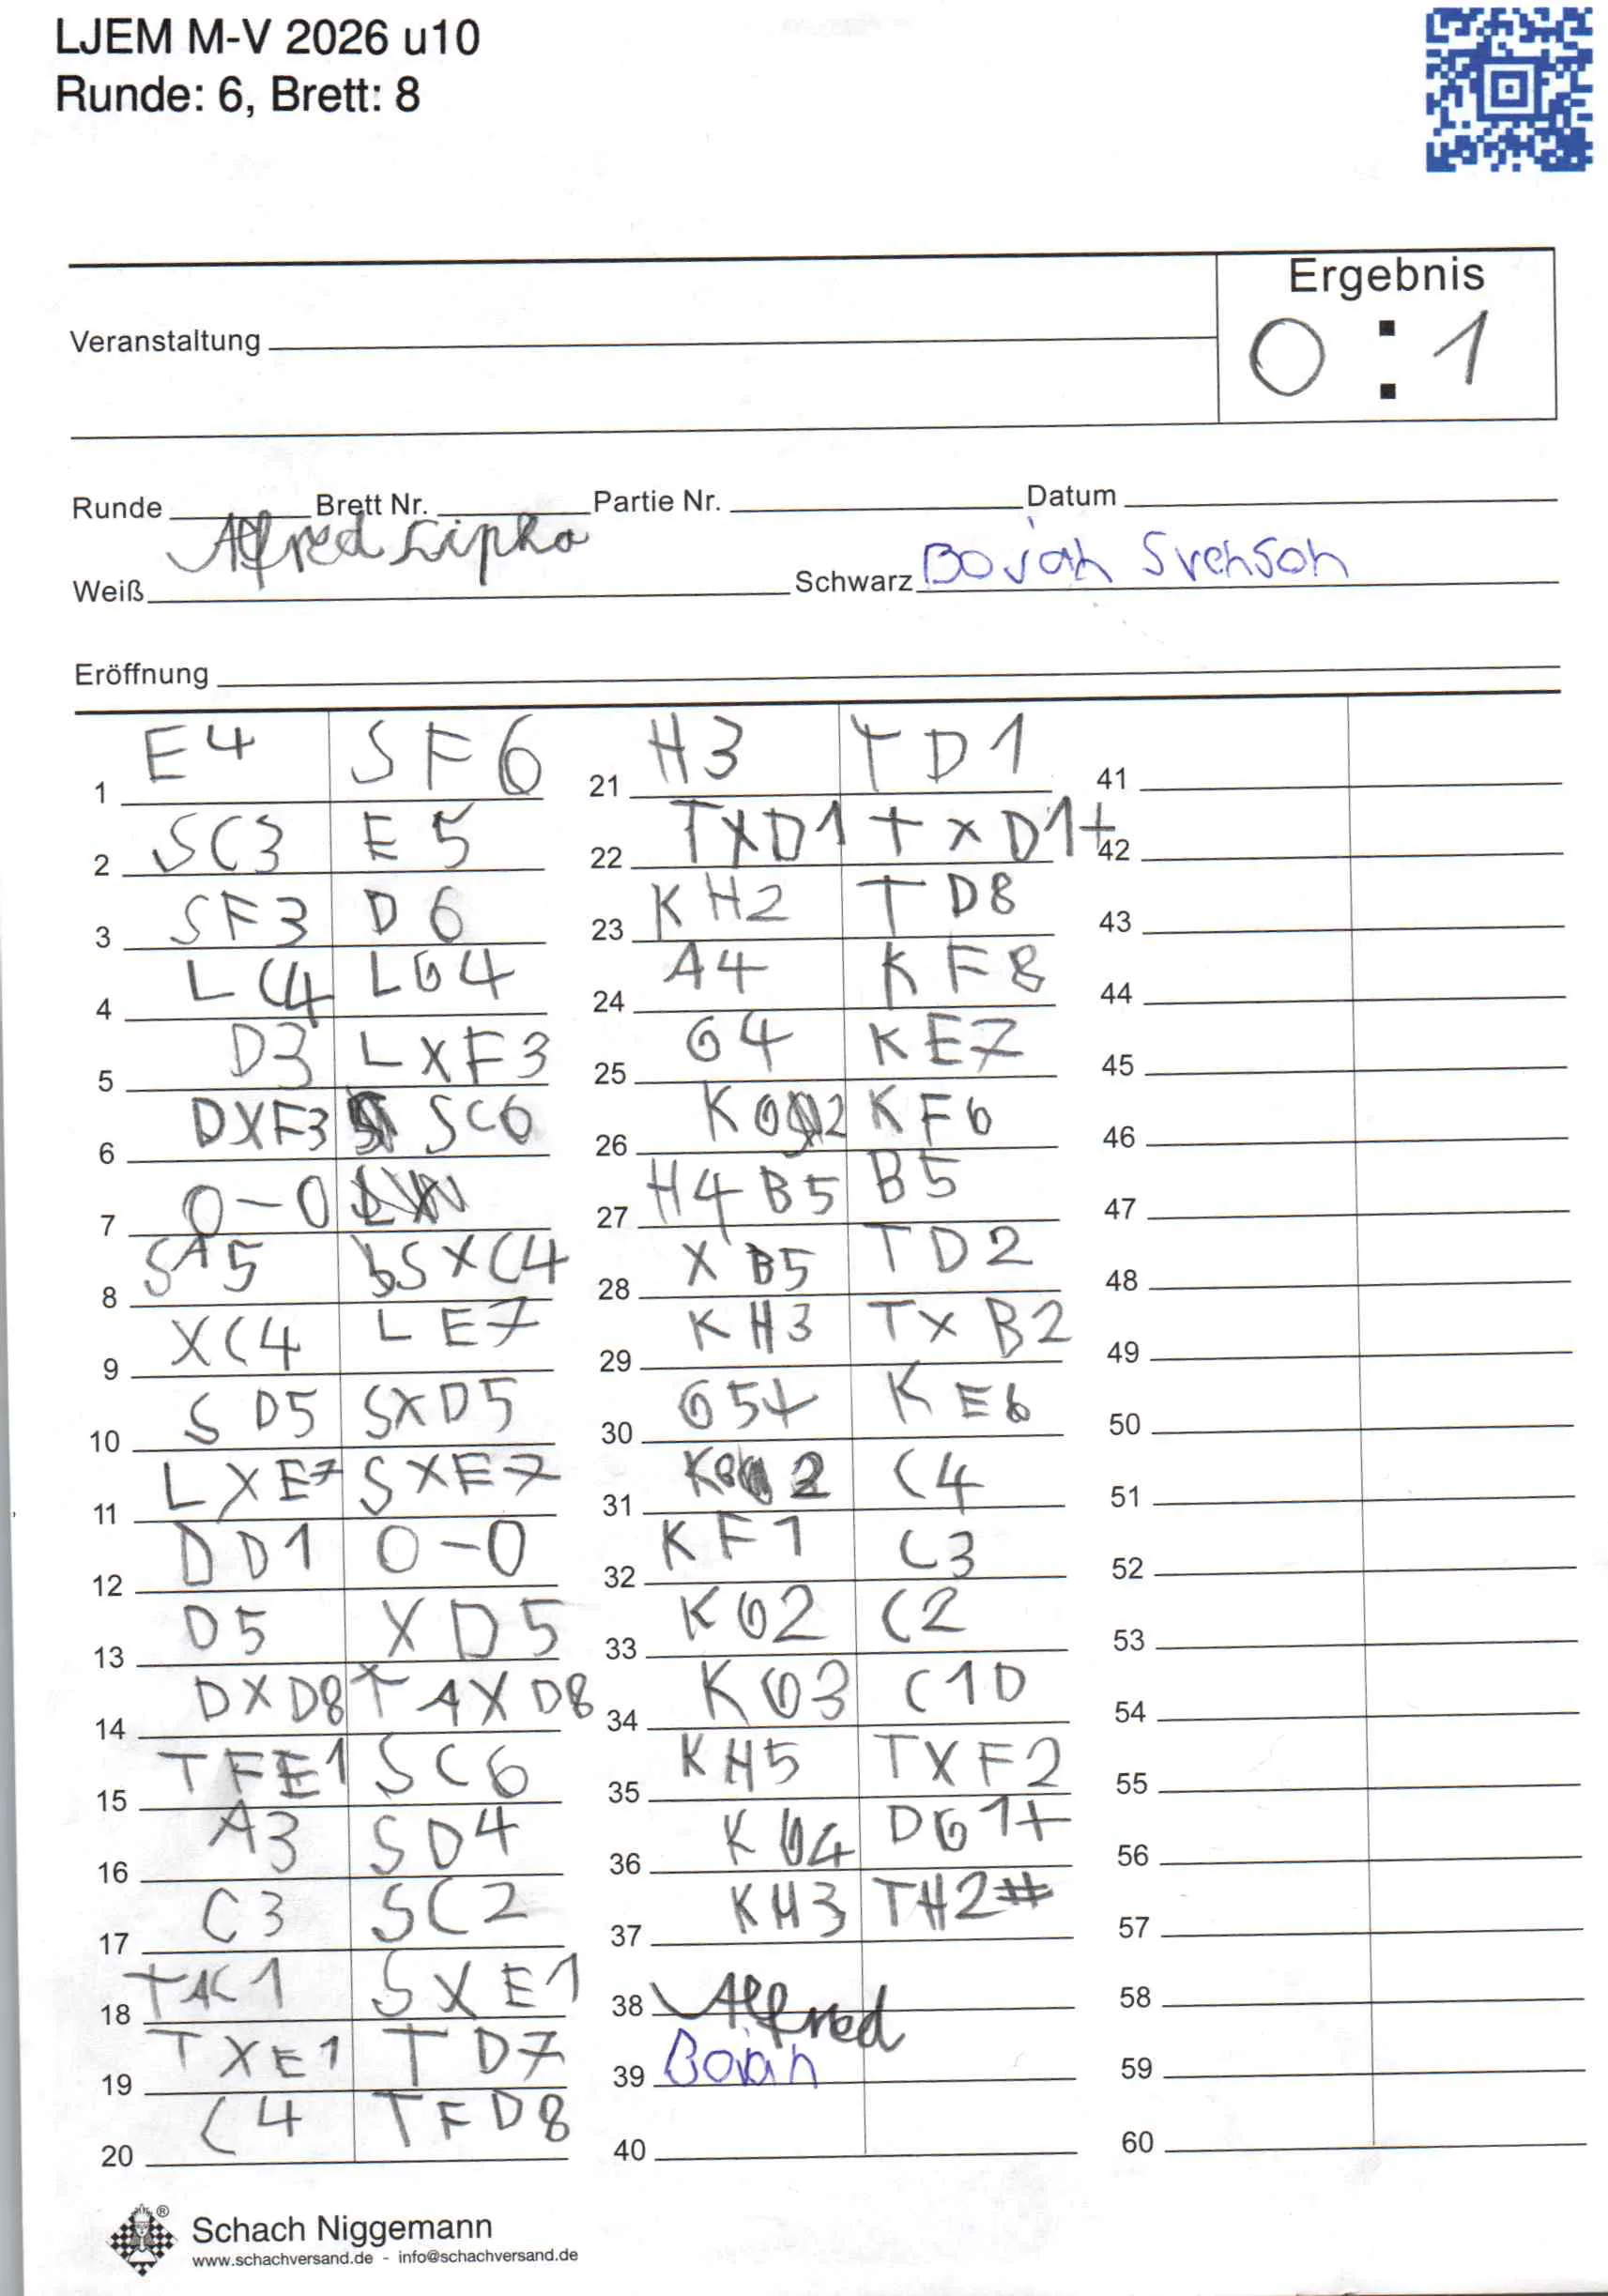 LJEM M-V 2026 u10
Runde: 6, Brett: 8
Ergebnis
Veranstaltung
0 : 1
Runde Brett Nr. Partie Nr. Datum
Weiß Alfred Lipka Schwarz Bojan Svenson
Eröffnung
1 E4 SF6
2 SC3 E5
3 SF3 D6
4 LC4 LG4
5 D3 LXF3
6 DXF3 SC6
7 0-0
8 SA5 SXC4
9 XC4 LE7
10 SD5 SXD5
11 LXE7 SXE7
12 DD1 0-0
13 D5 XD5
14 DXD8 TAXD8
15 TFE1 SC6
16 A3 SD4
17 C3 SC2
18 TAC1 SXE1
19 TXE1 TD7
20 C4 TFD8
21 H3 TD1
22 TXD1 TXD1+
23 KH2 TD8
24 A4 KF8
25 G4 KE7
26 KG2 KF6
27 H4 B5 B5
28 XB5 TD2
29 KH3 TXB2
30 G5+ KE6
31 K 2 C4
32 KF1 C3
33 KG2 C2
34 KG3 C1D
35 KH5 TXF2
36 KG4 DG1+
37 KH3 TH2#
38 Alfred
39 Bojan
40
41
42
43
44
45
46
47
48
49
50
51
52
53
54
55
56
57
58
59
60
Schach Niggemann
www.schachversand.de - info@schachversand.de